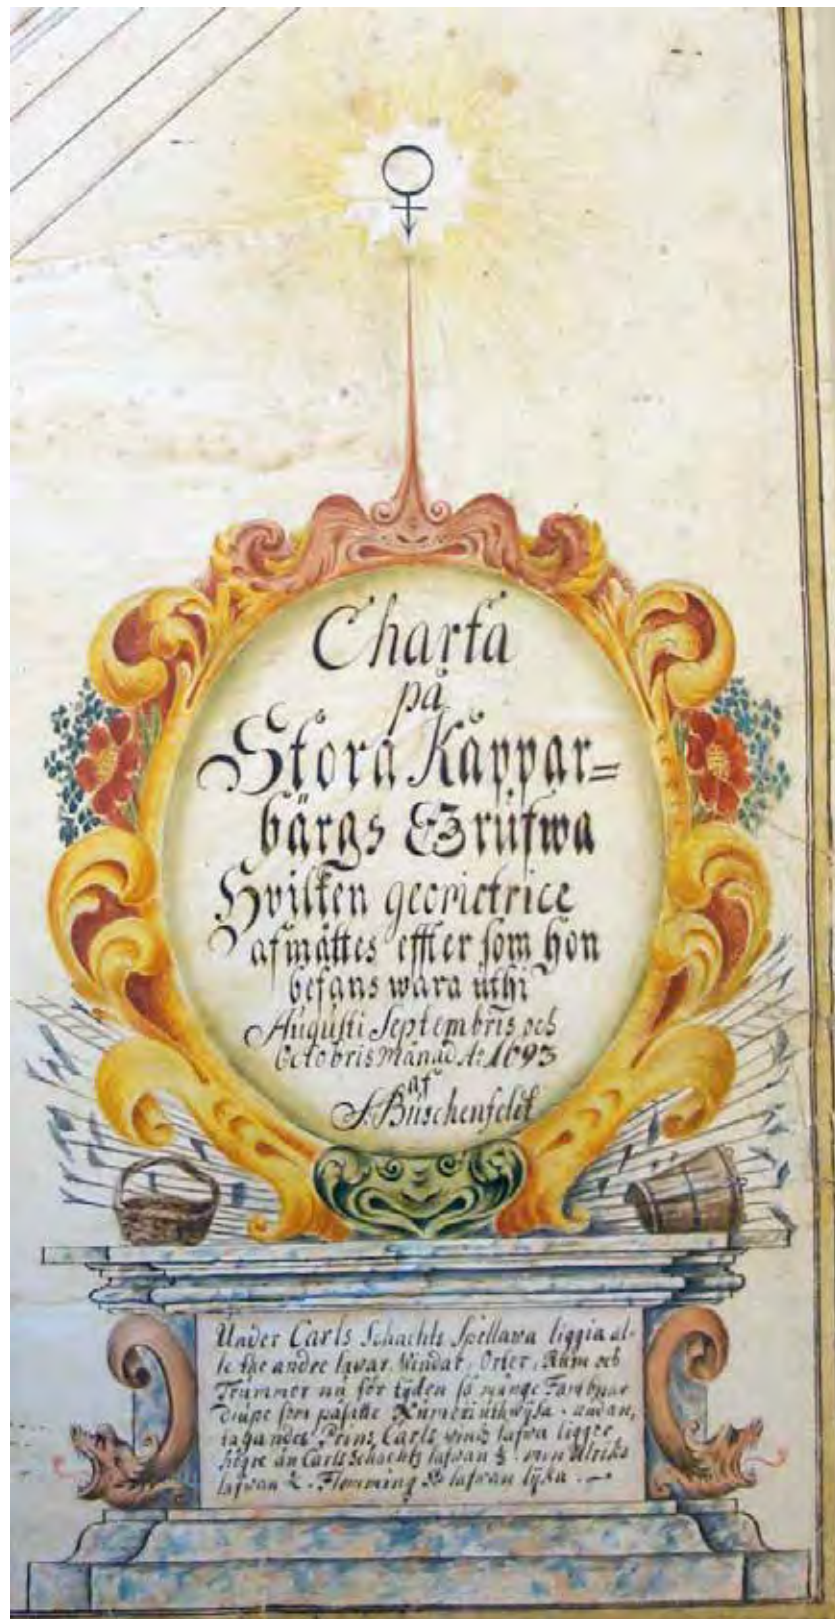 Charta
på
Stora Kåppar=
bärgs Grufwa
Hvilken geometrice
afmättes effter som hon
befans wara uthi
Augusti Septembris och
Octobris Månad Aº 1693
af
J. Buschenfelt
Under Carls Schachts Spellawa liggia al-
le the andre lawar, Windar, Orter, Rum och
Trummor nu för tyden så månge Fambnar
diupe som påsatte Numeri uthwysa. undan,
tagandes Prins Carls wind lafwa ligger
högre än Carls Schachts lafwan men Ulriks
lafwan Flemming lafwan lyka.